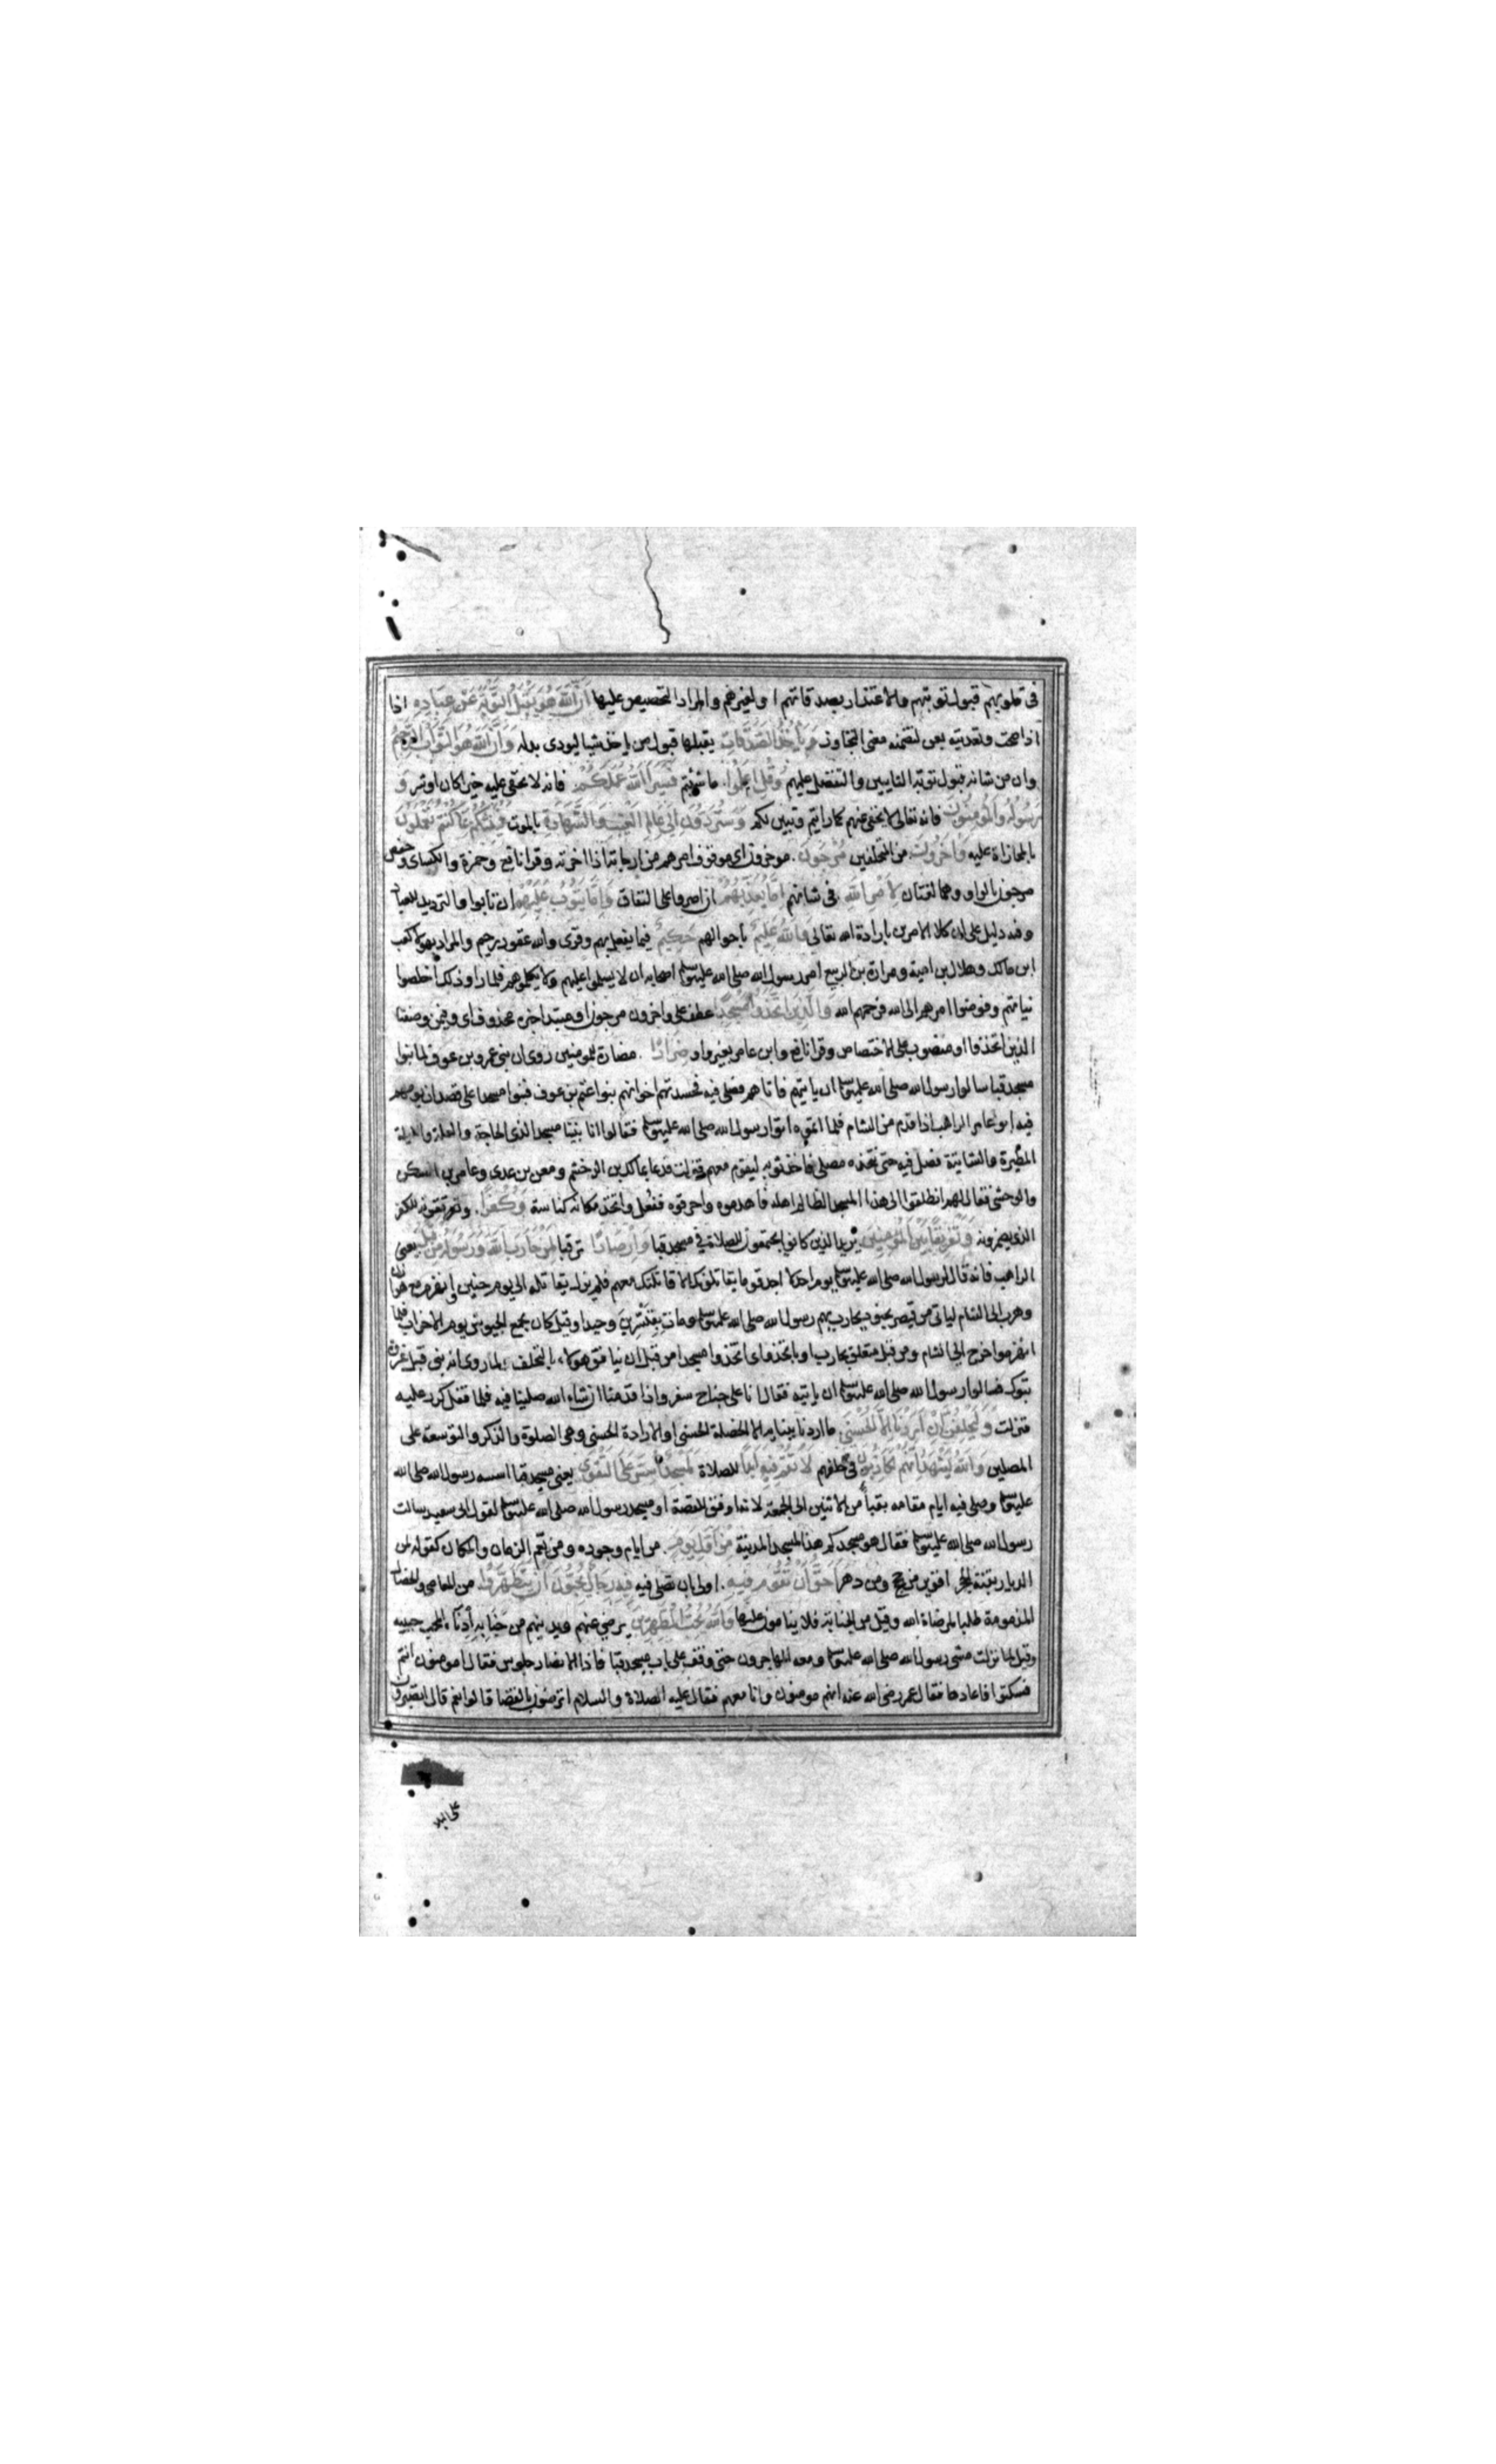 في قلوبهم قبول توبتهم والاعتذار بصدقاتهم او لغيرهم والمراد التحصيص عليها ان الله هو يقبل التوبة عن عباده اذا
اذا صحت وتعديته بعن لتضمنه معنى التجاوز وياخذ الصدقات يقبلها قبول من ياخذ شيا ليودى بدله وان الله هو التواب الرحيم
وان من شانه قبول توبة التايبين والتفضل عليهم وقل اعملوا ما شئتم فسيرى الله عملكم فانه لا يخفى عليه خيرا كان او شر و
رسوله والمومنون فانه تعالى لا يخفى عنهم كما رايتم وتبين لكم وستردون الى عالم الغيب والشهادة بالموت فينبئكم بما كنتم تعملون
بالمجازاة عليه واخرون من المتخلفين مرجون موخرون اى موقوف امرهم من ارجاته اذا اخرته وقرا نافع وحمزة والكساى وحفص
مرجون بالواو وهما لغتان لامر الله فى شانهم اما يعذبهم ان اصروا على النفاق واما يتوب عليهم ان تابوا والترديد للعباد
وفيه دليل على ان كلا الامرين بارادة الله تعالى والله عليم باحوالهم حكيم فيما يفعل بهم وقرى والله غفور رحيم والمراد بهولا كعب
ابن مالك وهلال بن امية ومرارة بن الربيع امر رسول الله صلى الله عليه وسلم اصحابه ان لا يسلموا عليهم ولا يكلموهم فلما راو ذلك اخلصوا
نياتهم وفوضوا امرهم الى الله فرحمهم الله والذين اتخذوا مسجدا عطف على واخرون مرجون او مبتدا خبره محذوف اى وفيمن وصفنا
الذين اتخذوا او منصوب على الاختصاص وقرا نافع وابن عامر بغير واو ضرارا مضارة للمومنين روى ان بنى عمرو بن عوف لما بنوا
مسجد قبا سالوا رسول الله صلى الله عليه وسلم ان ياتيهم فاتاهم فصلى فيه فحسدتهم اخوانهم بنوا غنم بن عوف فبنوا مسجدا على قصد ان يومهم
فيه ابو عامر الراهب اذا قدم من الشام فلما اتموه اتوا رسول الله صلى الله عليه وسلم فقالوا انا بنينا مسجدا لذى الحاجة والعلة والليلة
المطيرة والشاتية فصل فيه حتى نتخذه مصلى فاخذ ثوبه ليقوم معهم فنزلت فدعا بمالك بن الدخشم ومعن بن عدى وعامر بن السكن
والوحشى فقال لهم انطلقوا الى هذا المسجد الظالم اهله فاهدموه واحرقوه ففعل واتخذ مكانه كناسة وكفرا وتقوية للكفر
الذى يضمرونه وتفريقا بين المومنين يريد الذين كانوا يجتمعون للصلاة فى مسجد قبا وارصادا ترقبا لمن حارب الله ورسوله من قبل يعنى
الراهب فانه قال لرسول الله صلى الله عليه وسلم يوم احد لا اجد قوما يقاتلونك الا قاتلتك معهم فلم يزل يقاتله الى يوم حنين انهزم مع هوازن
وهرب الى الشام لياتى من قيصر بجنود يحارب بهم رسول الله صلى الله عليه وسلم ومات بقنسرين وحيدا وقيل كان يجمع الجيوش يوم الاحزاب فلما
انهزموا خرج الى الشام ومن قبل متعلق بحارب او باتخذوا اى اتخذوا مسجدا من قبل ان ينافق هولاء بالتخلف لما روى انه بنى قبل غزوة
تبوك فسالوا رسول الله صلى الله عليه وسلم ان ياتيه فقال انا على جناح سفر واذا قدمنا ان شاء الله صلينا فيه فلما قفل كرر عليه
فنزلت وليحلفن ان اردنا الا الحسنى ما اردنا ببنايه الا الخصلة الحسنى او الارادة الحسنى وهى الصلوة والذكر والتوسعة على
المصلين والله يشهد انهم لكاذبون فى حلفهم لا تقم فيه ابدا للصلاة لمسجد اسس على التقوى يعنى مسجد قبا اسسه رسول الله صلى الله
عليه وسلم وصلى فيه ايام مقامه بقبا من الاثنين الى الجمعة لانه اوفق للقصة او مسجد رسول الله صلى الله عليه وسلم لقول ابى سعيد سالت
رسول الله صلى الله عليه وسلم فقال هو مسجدكم هذا المسجد المدينة من اول يوم من ايام وجوده ومن يعم الزمان والمكان كقوله لمن
الديار بقنة الحجر اقوين من حجج ومن دهر احق ان تقوم فيه اولى بان تصلى فيه فيه رجال يحبون ان يتطهروا من المعاصى والخصال
المذمومة طلبا لمرضاة الله وقيل من الجنابة فلا ينامون عليها والله يحب المطهرين يرضى عنهم ويدنيهم من جنابه ادناء المحب حبيبه
وقيل لما نزلت مشى رسول الله صلى الله عليه وسلم ومعه المهاجرون حتى وقف على باب مسجد قبا فاذا الانصار جلوس فقال امومنون انتم
فسكتوا فاعادها فقال عمر رضى الله عنه انهم مومنون وانا معهم فقال عليه الصلاة والسلام اترضون بالقضا قالوا نعم قال اتصبرون